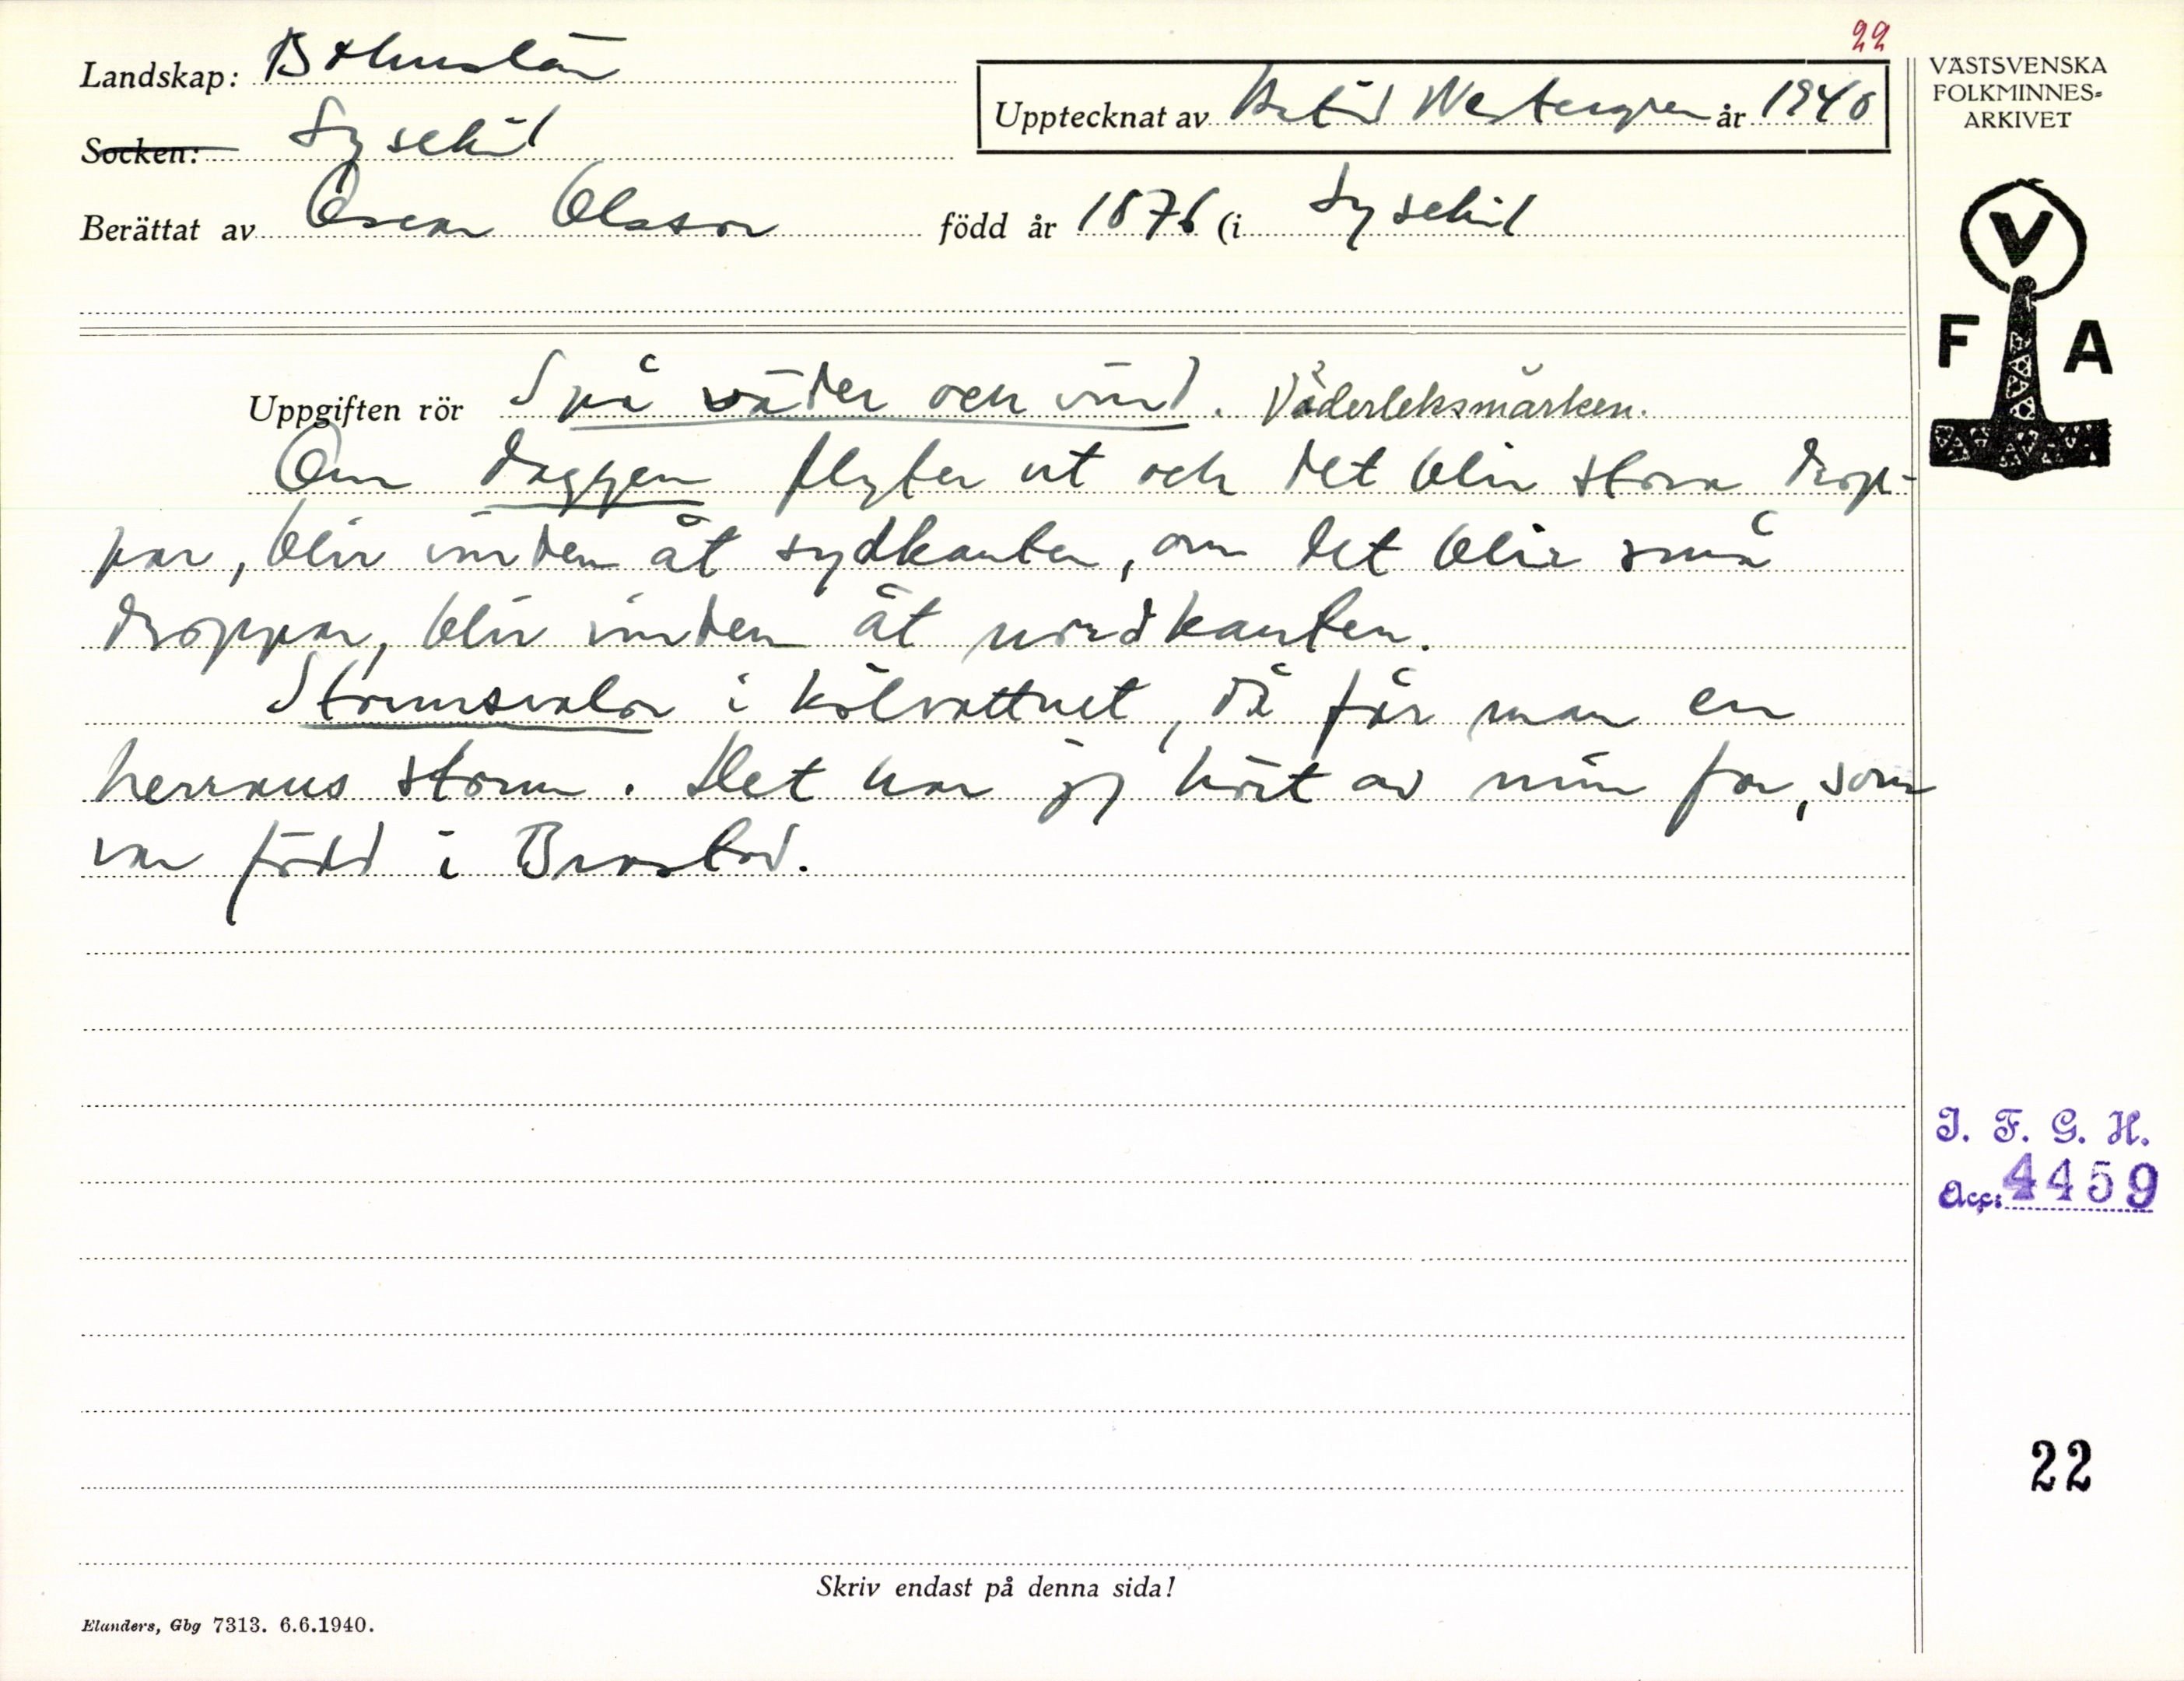 22
Landskap: Bohuslän
Socken: Lysekil
Upptecknat av Astrid Westergren år 1940
Berättat av Oscar Olsson född år 1876 (i Lysekil
VÄSTSVENSKA
FOLKMINNES-
ARKIVET
V
F A
Uppgiften rör Spå väder och vind. Väderleksmärken.
Om daggen flyter ut och det blir stora drop-
par, blir vinden åt sydkanten, om det blir små
droppar, blir vinden åt nordkanten.
Stormsvalor i kölvattnet, då får man en
herrans storm. Det har jag hört av min far, som
var född i Brastad.
I. F. G. H.
Acc: 4459
22
Skriv endast på denna sida!
Elanders, Gbg 7313. 6.6.1940.